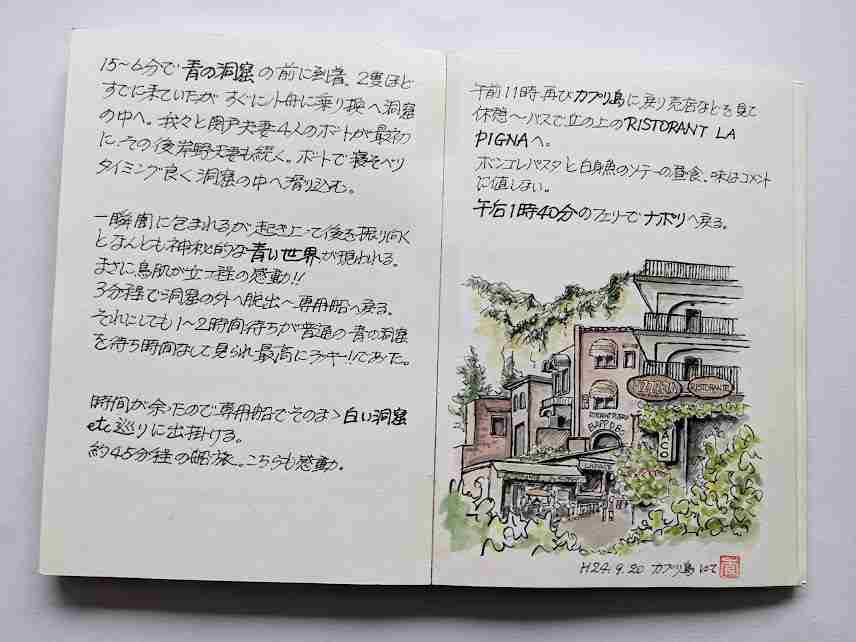 15～6分で 青の洞窟 の前に到着。2隻ほど
すでに来ていたが すぐに小舟に乗り換へ洞窟
の中へ。我々と 夫妻4人のボートが最初
に、その後岸野夫妻も続く。ボートで寝そべり
タイミング良く洞窟の中へ滑り込む。
一瞬闇に包まれるが 起き上って後を振り向く
となんとも神秘的な青い世界が現われる。
まさに鳥肌が立つ程の感動!!
3分程で洞窟の外へ脱出～専用船へ戻る。
それにしても1～2時間待ちが普通の青の洞窟
を待ち時間なしで見られ最高にラッキーであった。
時間が余ったので専用船でそのまゝ白い洞窟
etc巡りに出掛ける。
約45分程の船旅。こちらも感動。
午前11時 再びカプリ島に戻り売店などを見て
休憩～バスで丘の上のRISTORANT LA
PIGNAへ。
ボンゴレパスタと白身魚のソテーの昼食、味はコメント
に値しない。
午后1時40分のフェリーでナポリへ戻る。
RISTORANTE
H24.9.20 カプリ島 にて